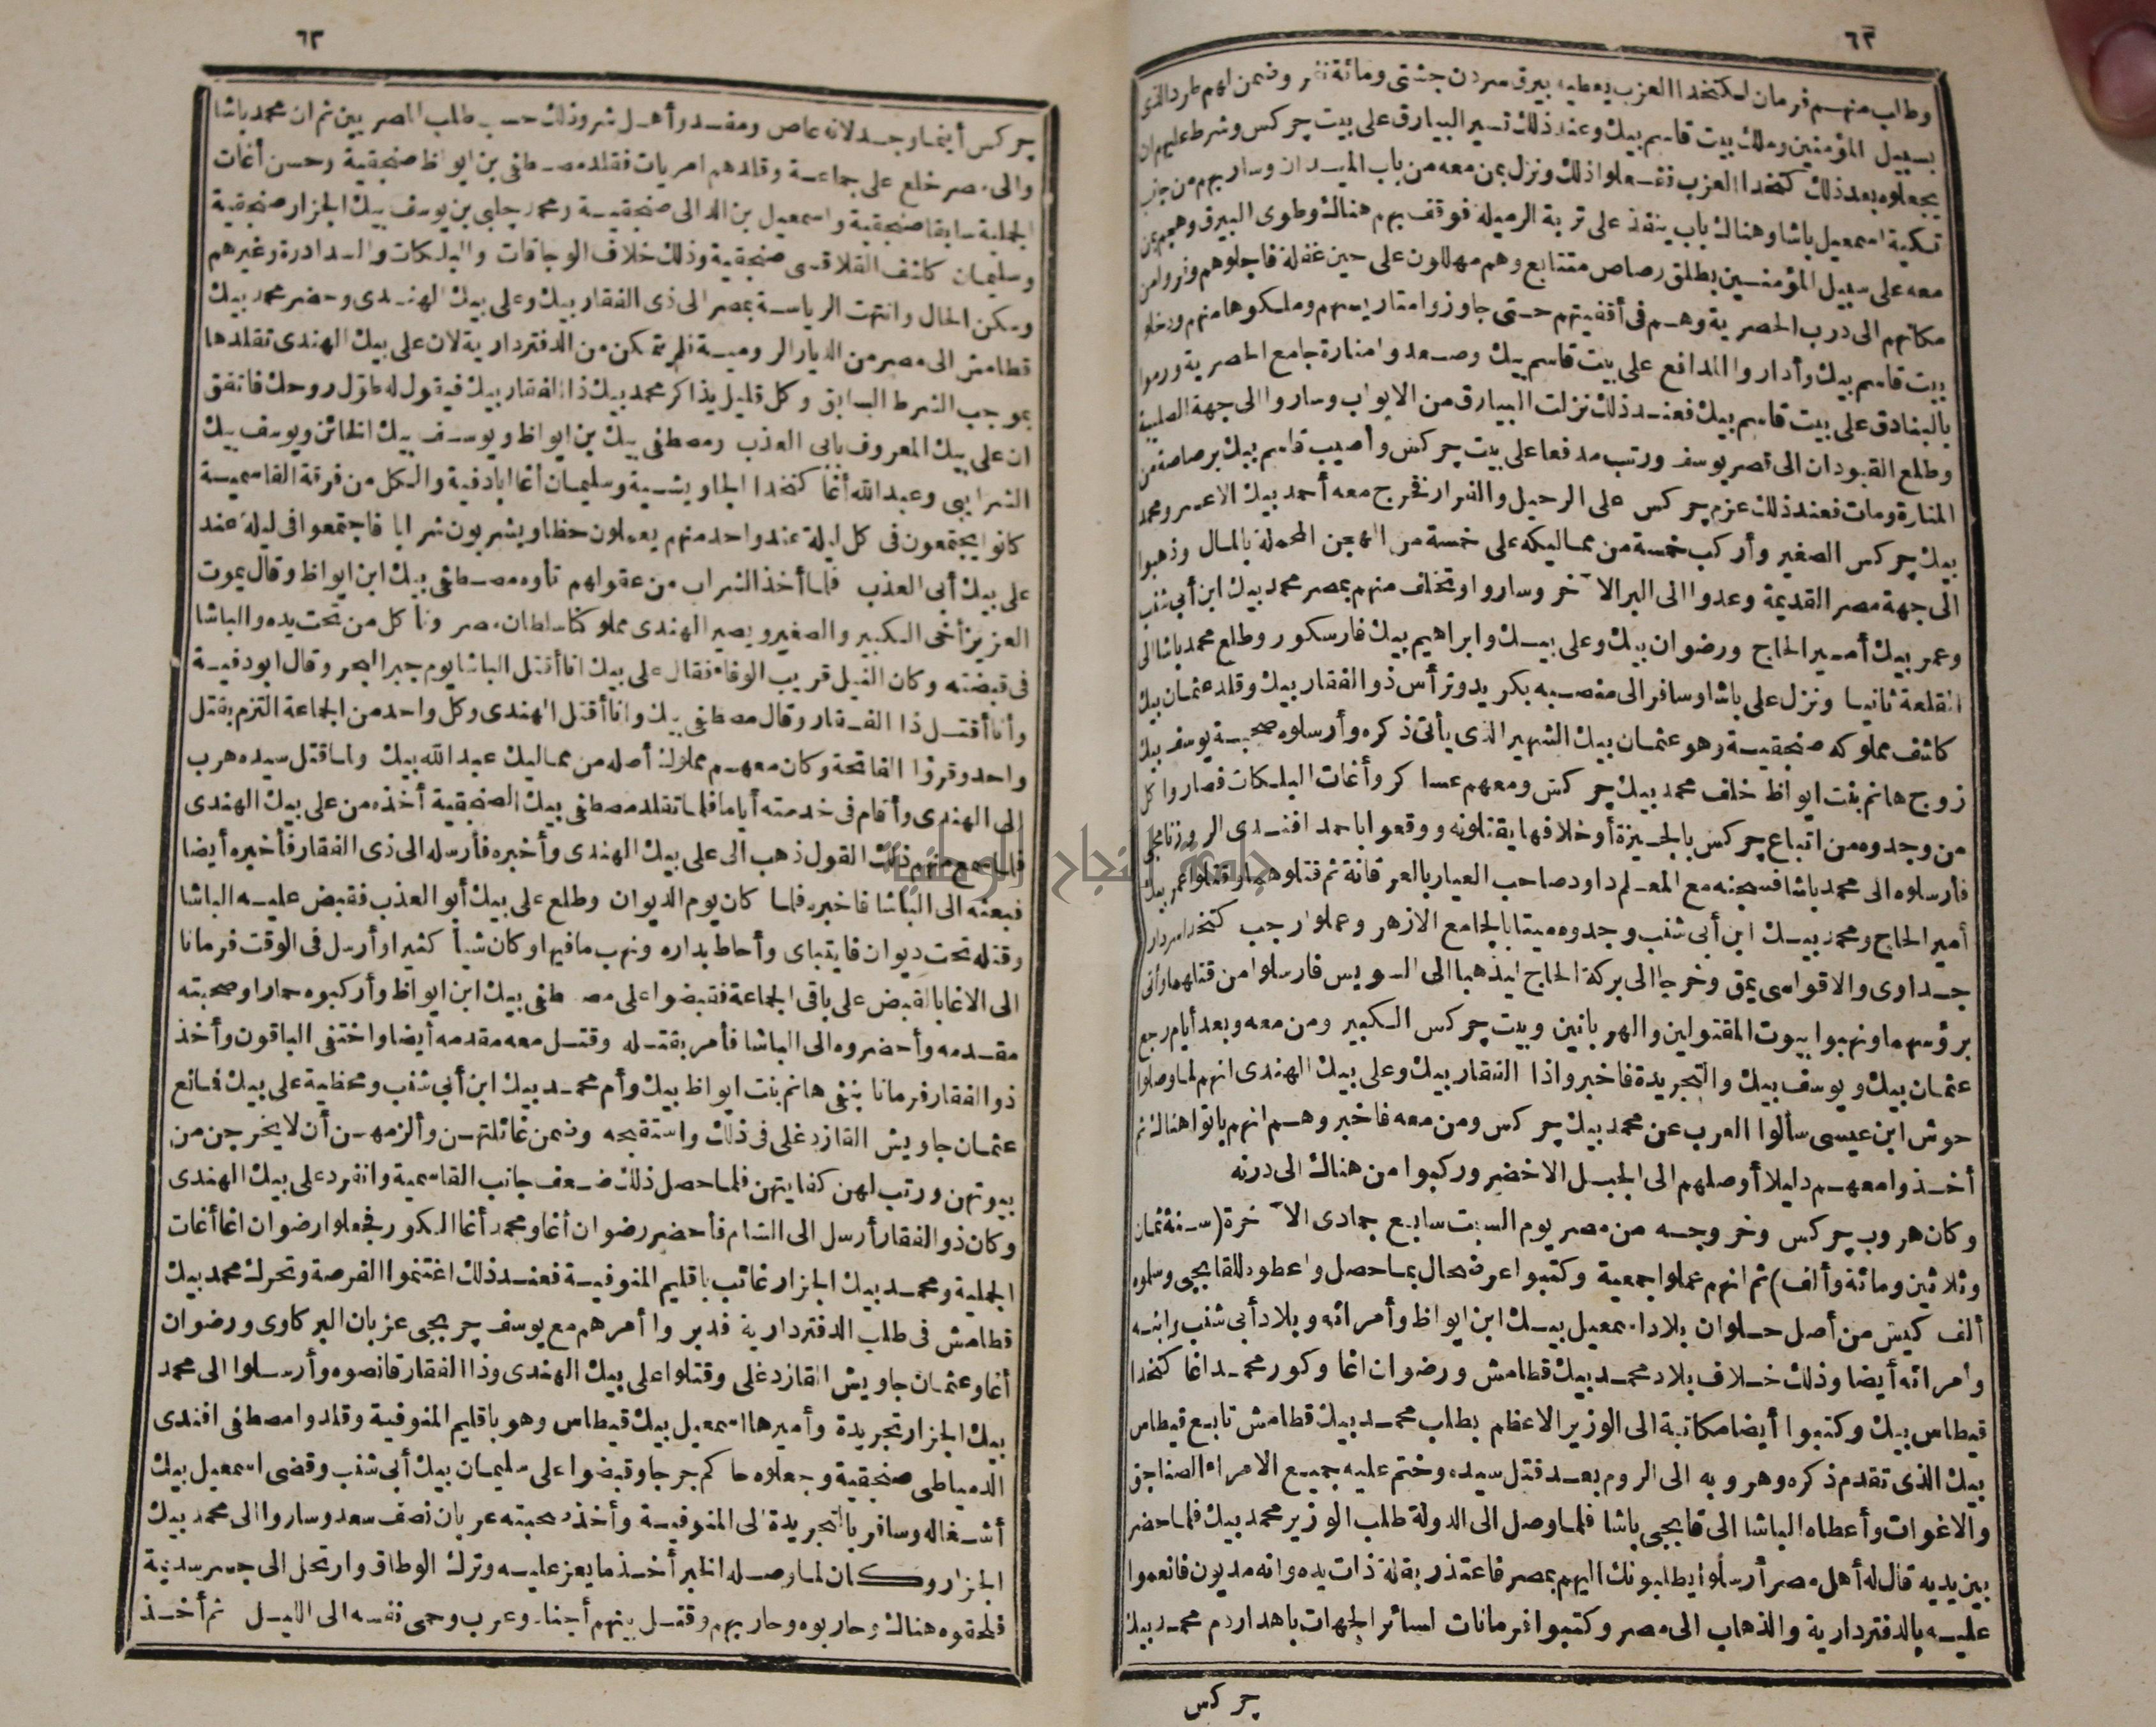 ٦٢
وطلب منهم فرمان لكتخدا العزب يعطيه بيرق سردن جشتى ومائة نفر وضمن لهم طرد الذى
بسبيل المؤمنين وملك بيت قاسم بيك وعند ذلك تسير البيارق على بيت چركس وشرط عليهم ان
يجعلوه بعد ذلك كتخدا العزب ففعلوا ذلك ونزل بمن معه من باب الميدان وسار بهم من جانب
تكية اسمعيل باشا وهناك باب ينفذ على تربة الرميله فوقف بهم هناك وطوى البيرق وهجم بمن
معه على سبيل المؤمنين بطلق رصاص متتابع وهم مهللون على حين غفلة فاجلوهم وفروا من
مكانهم الى درب الحصرية وهم فى أقفيتهم حتى جاوزوا متاريسهم وملكوها منهم ودخلوا
بيت قاسم بيك وأداروا المدافع على بيت قاسم بيك وصعدوا منارة جامع الحصرية ورموا
بالبنادق على بيت قاسم بيك فعند ذلك نزلت البيارق من الابواب وساروا الى جهة الصليبة
وطلع القبودان الى قصر يوسف ورتب مدفعا على بيت چركس وأصيب قاسم بيك برصاصة من
المنارة ومات فعند ذلك عزم چركس على الرحيل والفرار فخرج معه أحمد بيك الاعسر ومحمد
بيك چركس الصغير وأركب خمسة من مماليكه على خمسة من الهجن المحملة بالمال وذهبوا
الى جهة مصر القديمة وعدوا الى البر الآخر وساروا وتخلف منهم بمصر محمد بيك ابن أبى شنب
وعمر بيك أمير الحاج ورضوان بيك وعلى بيك وابراهيم بيك فارسكور وطلع محمد باشا الى
القلعة ثانيا ونزل على باشا وسافر الى منصبه بكريد وترأس ذو الفقار بيك وقلد عثمان بيك
كاشف مملوكه صنجقية وهو عثمان بيك الشهير الذى يأتى ذكره وأرسلوه صحبة يوسف بيك
زوج هانم بنت ايواظ خلف محمد بيك چركس ومعهم عساكر وأغات البلكات فصاروا كل
من وجدوه من اتباع چركس بالجيزة أو خلافها يقتلونه ووقعوا باحمد افندى الروزنامجى
فأرسلوه الى محمد باشا فسجنه مع المعلم داود صاحب العيار بالعرقانة ثم قتلوهما وقتلوا عمر بيك
أمير الحاج ومحمد بيك ابن أبى شنب وجدوه ميتا بالجامع الازهر وعملوا رجب كتخدا سردار
جداوى والاقواسى يمق وخرجا الى بركة الحاج ليذهبا الى السويس فارسلوا من قتلهما وأتى
برؤسهما ونهبوا بيوت المقتولين والهربانين وبيت چركس الكبير ومن معه وبعد أيام رجع
عثمان بيك ويوسف بيك والتجريدة فاخبروا ذا الفقار بيك وعلى بيك الهندى انهم لما وصلوا
حوش ابن عيسى سألوا العرب عن محمد بيك چركس ومن معه فاخبروهم انهم باتوا هناك ثم
أخذوا معهم دليلا أوصلهم الى الجبل الاخضر وركبوا من هناك الى درنه
وكان هروب چركس وخروجه من مصر يوم السبت سابع جمادى الآخرة (سنة ثمان
وثلاثين ومائة وألف) ثم انهم عملوا جمعية وكتبوا عرضحال بما حصل واعطوه للقابجى وسلموه
ألف كيس من أصل حلوان بلاد اسمعيل بيك ابن ايواظ وأمرائه وبلاد أبى شنب وابنه
وأمرائه أيضا وذلك خلاف بلاد محمد بيك قطامش ورضوان اغا وكور محمد اغا كتخدا
قيطاس بيك وكتبوا أيضا مكاتبة الى الوزير الاعظم بطلب محمد بيك قطامش تابع قيطاس
بيك الذى تقدم ذكره وهروبه الى الروم بعد قتل سيده وختم عليه جميع الامراء الصناجق
والاغوات وأعطاه الباشا الى قابجى باشا فلما وصل الى الدولة طلب الوزير محمد بيك فلما حضر
بين يديه قال له أهل مصر أرسلوا يطلبونك اليهم بمصر فاعتذر بقلة ذات يده وانه مديون فانعموا
عليه بالدفتردارية والذهاب الى مصر وكتبوا فرمانات لسائر الجهات باهدار دم محمد بيك
چركس
٦٣
چركس أينما وجد لانه عاص ومفسد وأهل شر وذلك حسب طلب المصريين ثم ان محمد باشا
والى مصر خلع على جماعة وقلدهم امريات فقلد مصطفى بن ايواظ صنجقية وحسن أغات
الجملية سابقا صنجقية واسمعيل بن الدالى صنجقية ومحمد چلبى بن يوسف بيك الجزار صنجقية
وسليمان كاشف القلاقسى صنجقية وذلك خلاف الوجاقات والبلكات والسدادرة وغيرهم
وسكن الحال وانتهت الرياسة بمصر الى ذى الفقار بيك وعلى بيك الهندى وحضر محمد بيك
قطامش الى مصر من الديار الرومية فلم يتمكن من الدفتردارية لان على بيك الهندى تقلدها
بموجب الشرط السابق وكل قليل يذاكر محمد بيك ذا الفقار بيك فيقول له طول روحك فاتفق
ان على بيك المعروف بابى العذب ومصطفى بيك بن ايواظ ويوسف بيك الخائن ويوسف بيك
الشرايبى وعبد الله أغا كتخدا الجاويشية وسليمان أغا ابادفية والكل من فرقة القاسمية
كانوا يجتمعون فى كل ليلة عند واحد منهم يعملون حظا ويشربون شرابا فاجتمعوا فى ليلة عند
على بيك أبى العذب فلما أخذ الشراب من عقولهم تأوه مصطفى بيك ابن ايواظ وقال يموت
العزيز أخى الكبير والصغير ويصير الهندى مملوكنا سلطان مصر ونأكل من تحت يده والباشا
فى قبضته وكان النيل قريب الوفاء فقال على بيك انا أقتل الباشا يوم جبر البحر وقال ابو دفية
وأنا أقتل ذا الفقار وقال مصطفى بيك وانا أقتل الهندى وكل واحد من الجماعة التزم بقتل
واحد وقرؤا الفاتحة وكان معهم مملوك أصله من مماليك عبد الله بيك ولما قتل سيده هرب
الى الهندى وأقام فى خدمته أياما فلما تقلد مصطفى بيك الصنجقية أخذه من على بيك الهندى
فلما سمع منهم ذلك القول ذهب الى على بيك الهندى وأخبره فأرسله الى ذى الفقار فأخبره أيضا
فبعثه الى الباشا فاخبره فلما كان يوم الديوان وطلع على بيك أبو العذب فقبض عليه الباشا
وقتله تحت ديوان قايتباى وأحاط بداره ونهب ما فيها وكان شيأ كثيرا وأرسل فى الوقت فرمانا
الى الاغا بالقبض على باقى الجماعة فقبضوا على مصطفى بيك ابن ايواظ وأركبوه حمارا وصحبته
مقدمه وأحضروه الى الباشا فأمر بقتله وقتل معه مقدمه أيضا واختفى الباقون وأخذ
ذو الفقار فرمانا بنفى هانم بنت ايواظ بيك وأم محمد بيك ابن أبى شنب ومحظية على بيك فمانع
عثمان جاويش القازدغلى فى ذلك واستقبحه وضمن غائلتهن وألزمهن أن لا يخرجن من
بيوتهن ورتب لهن كفايتهن فلما حصل ذلك ضعف جانب القاسمية وانفرد على بيك الهندى
وكان ذو الفقار أرسل الى الشام فأحضر رضوان أغا ومحمد أغا الكور فجعلوا رضوان اغا أغات
الجملية ومحمد بيك الجزار غائب باقليم المنوفية فعند ذلك اغتنموا الفرصة وتحرك محمد بيك
قطامش فى طلب الدفتردارية فدبروا أمرهم مع يوسف چربجى عزبان البركاوى ورضوان
أغا وعثمان جاويش القازدغلى وقتلوا على بيك الهندى وذا الفقار قانصوه وأرسلوا الى محمد
بيك الجزار تجريدة وأميرها اسمعيل بيك قيطاس وهو باقليم المنوفية وقلدوا مصطفى افندى
الدمياطى صنجقية وجعلوه حاكم جرجا وقبضوا على سليمان بيك أبى شنب وقضى اسمعيل بيك
أشغاله وسافر بالتجريدة الى المنوفية وأخذ صحبته عربان نصف سعد وساروا الى محمد بيك
الجزار وكان لما وصله الخبر أخذ ما يعز عليه وترك الوطاق وارتحل الى جسر سديمة
فلحقوه هناك وحاربوه وحاربهم وقتل بينهم أجناد وعرب وحمى نفسه الى الليل ثم أخذ